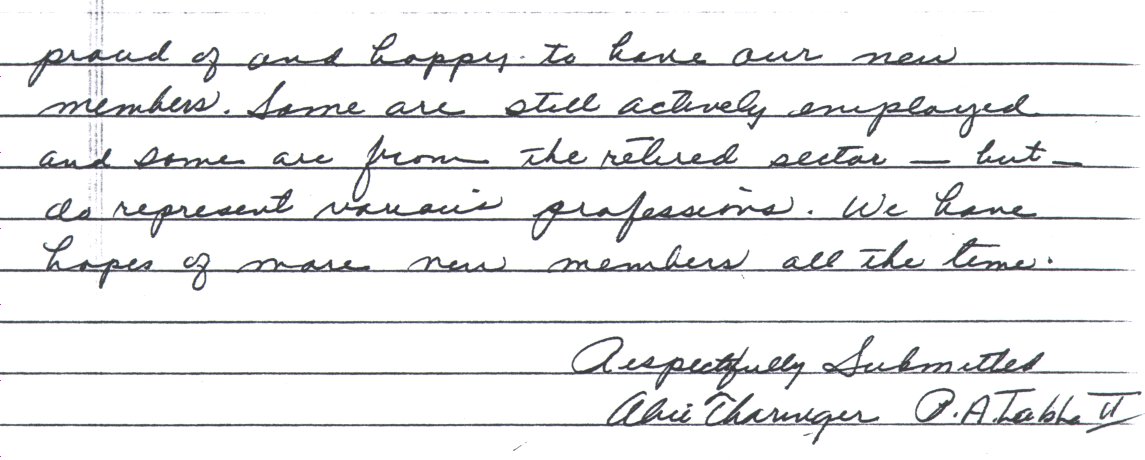 proud of and happy to have our new
members. Some are still actively employed
and some are from the retired sector — but —
do represent various professions. We have
hopes of more new members all the time.
Respectfully Submitted
Tharinger P.A.